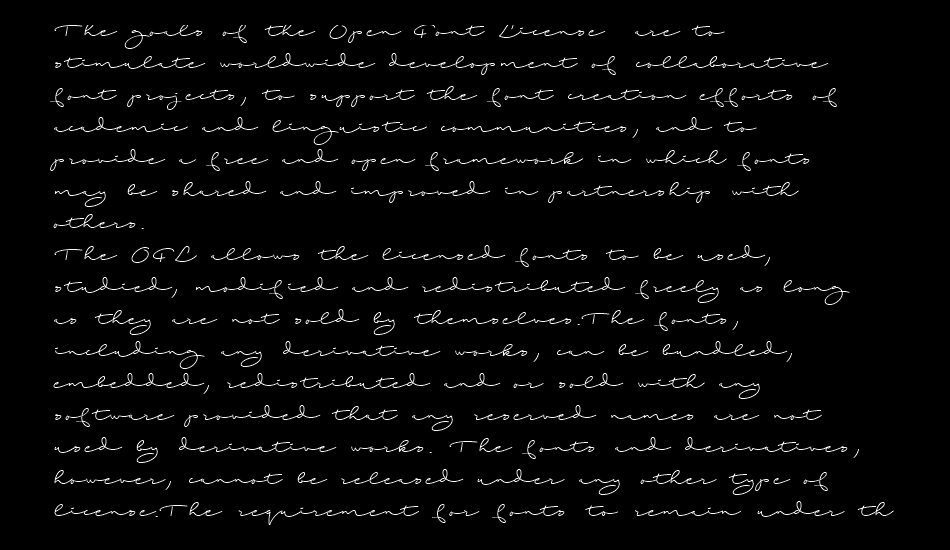 The goals of the Open Font License are to
stimulate worldwide development of collaborative
font projects, to support the font creation efforts of
academic and linguistic communities, and to
provide a free and open framework in which fonts
may be shared and improved in partnership with
others.
The OFL allows the licensed fonts to be used,
studied, modified and redistributed freely as long
as they are not sold by themselves.The fonts,
including any derivative works, can be bundled,
embedded, redistributed and or sold with any
software provided that any reserved names are not
used by derivative works. The fonts and derivatives,
however, cannot be released under any other type of
license.The requirement for fonts to remain under th